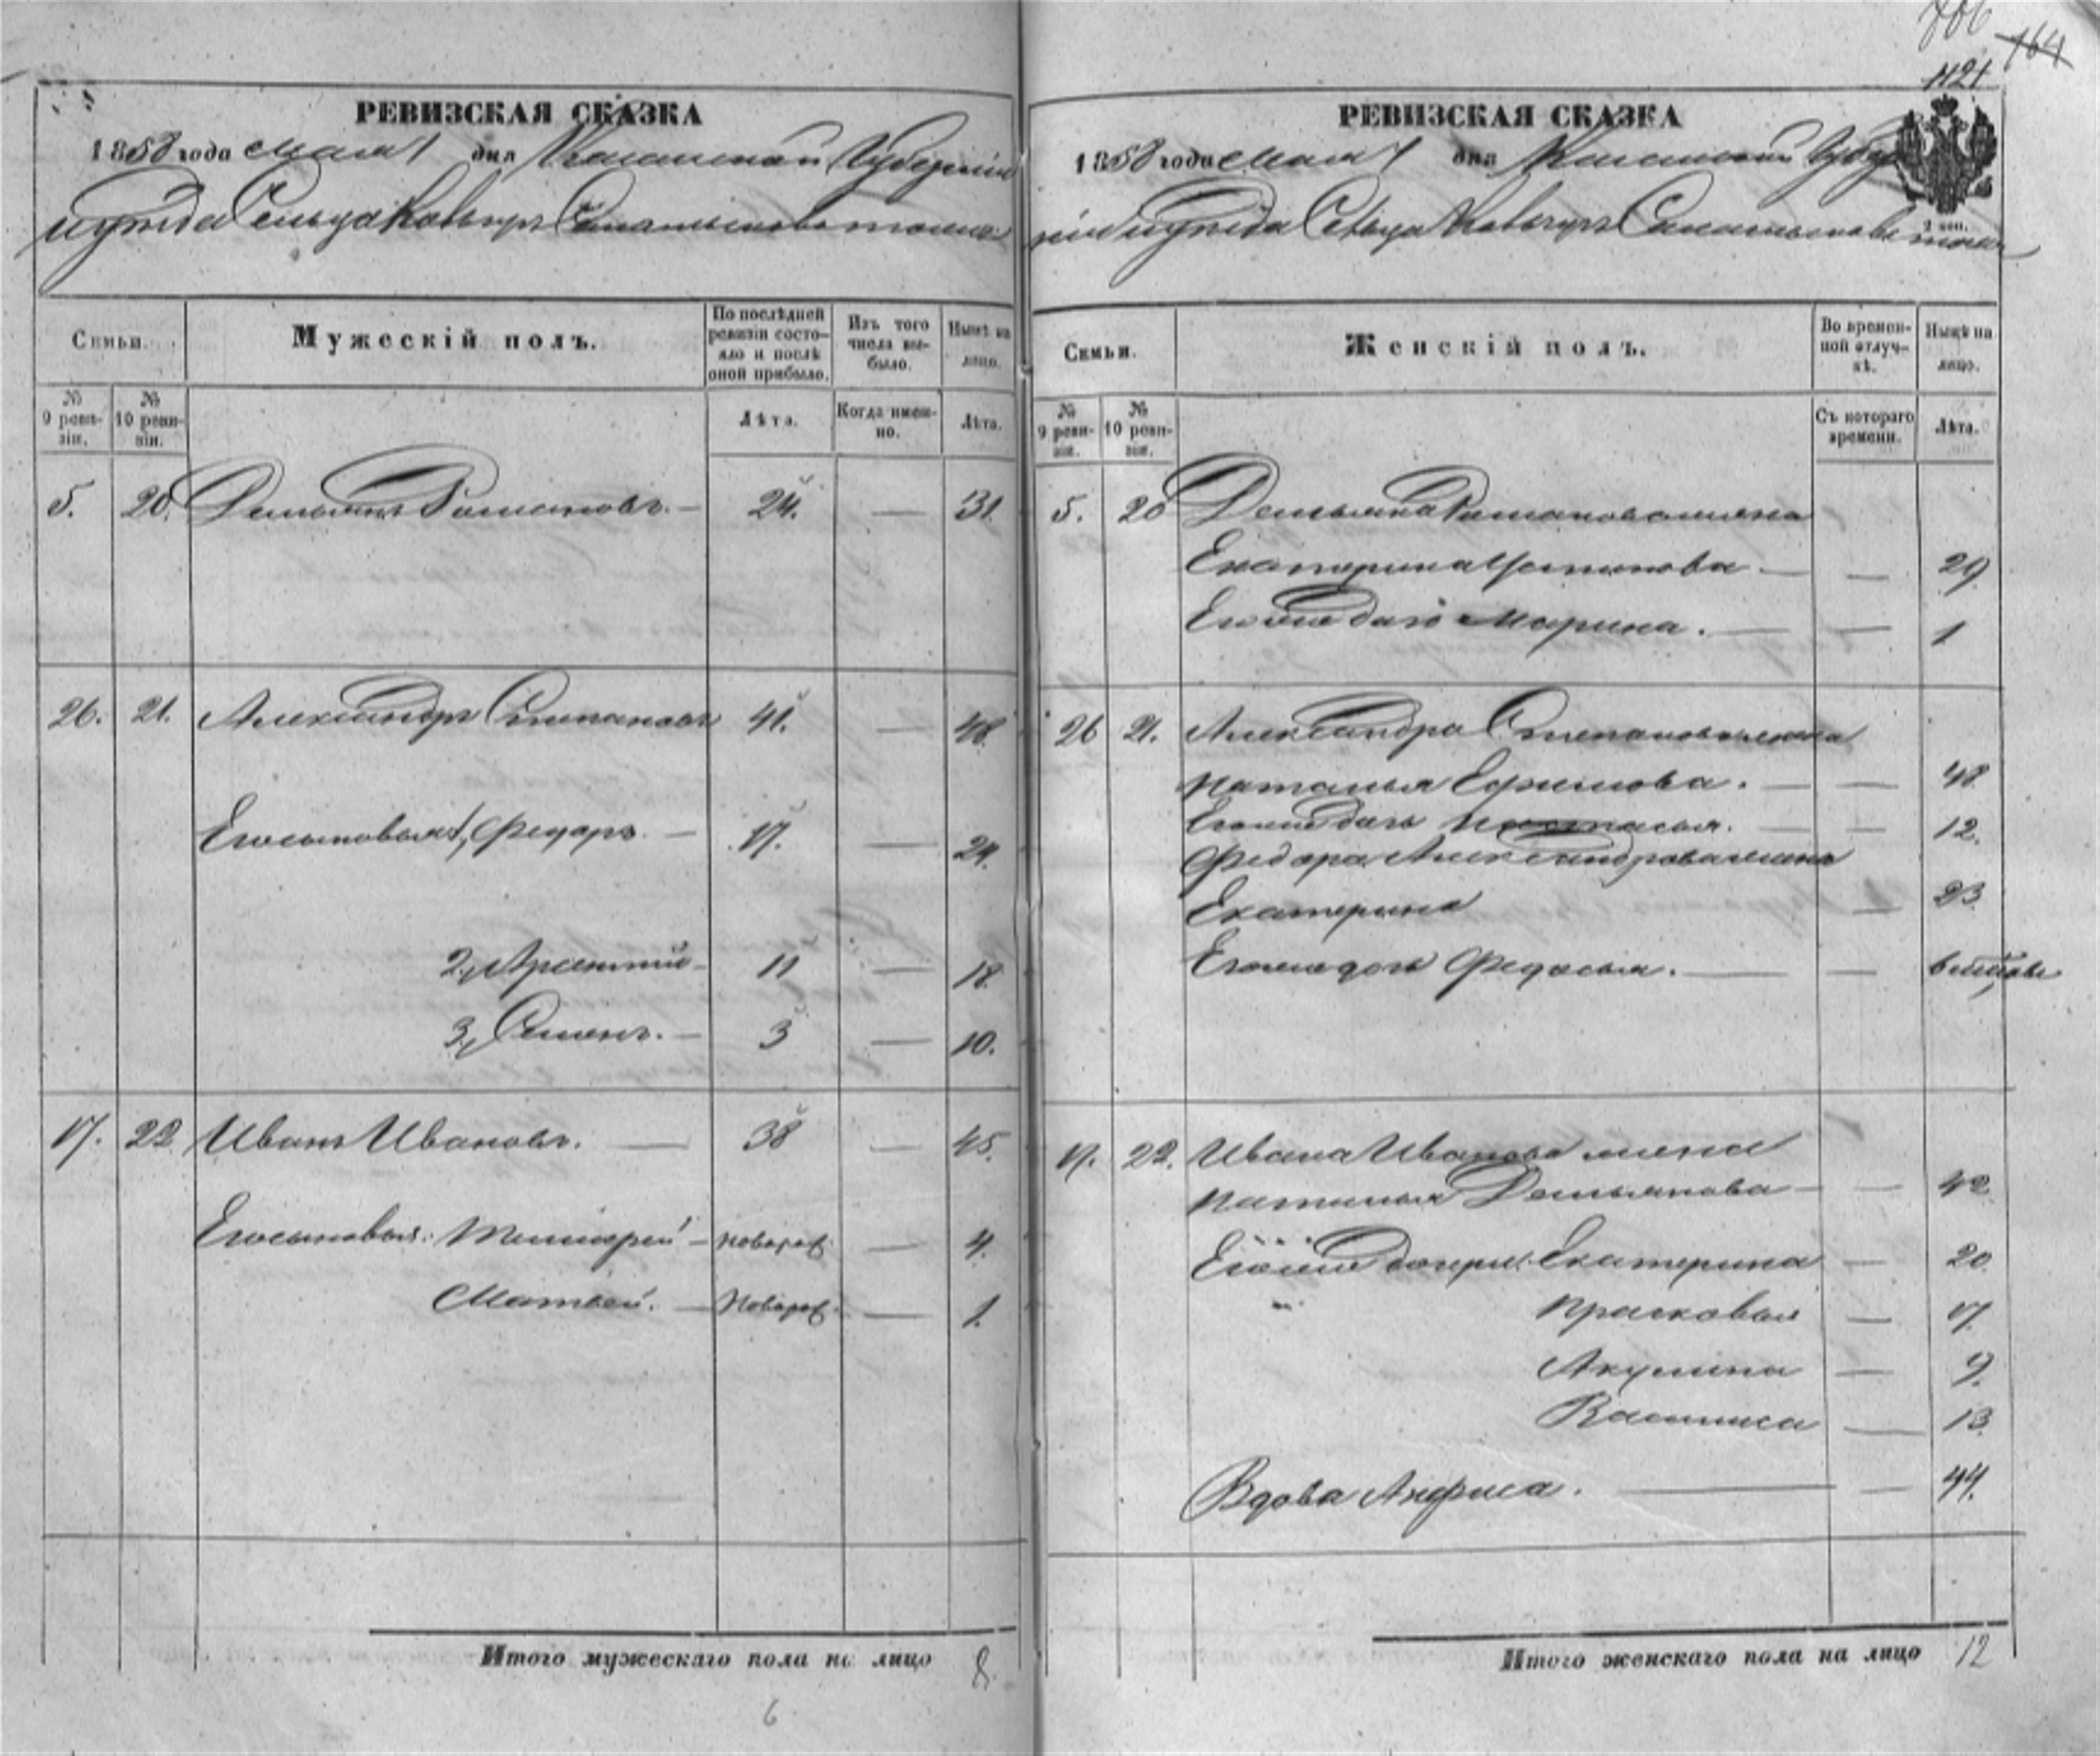 706
164
1121
РЕВИЗСКАЯ СКАЗКА
1858 года мая 1 дня Казанской Губерніи
уѣзда Сельца
Семьи.
Мужескій полъ.
По послѣдней ревизіи состояло и послѣ оной прибыло.
Изъ того числа выбыло.
Нынѣ на лицо.
№ 9 ревизіи.
№ 10 ревизіи.
Лѣта.
Когда именно.
Лѣта.
5. 20. Демьянъ Романовъ. — 24. — 31.
26. 21. Александръ Степановъ 41. — 48.
Егосыновья 1, Федоръ. — 17. — 24.
2, Арсентій — 11 — 18.
3, Семенъ. — 3 — 10.
17. 22 Иванъ Ивановъ. — 38 — 45.
Егосыновья: Тимофей — новорож. — 4.
Матвей. — новорож. — 1.
Итого мужескаго пола на лицо 8.
6
РЕВИЗСКАЯ СКАЗКА
1858 года мая 1 дня Казанской Губер
ніи уѣзда Сельца
2 коп.
Семьи.
Женскій полъ.
Во временной отлучкѣ.
Нынѣ на лицо.
№ 9 ревизіи.
№ 10 ревизіи.
Съ котораго времени.
Лѣта.
5. 20 Демьяна Романова жена
Екатерина Устинова — — 29
Егоже дочь Марина. — — 1
26 21. Александра Степанова жена
Наталья Ефимова. — — 48
Егоже дочь Настасья. — — 12.
Федора Александрова жена
Екатерина — 23
Егоже дочь Федосья. — —
17. 22. Ивана Иванова жена
Наталья Демьянова — — 42
Егоже дочери: Екатерина — 20
Прасковья — 17
Акулина — 9.
Василиса — 13
Вдова Анфиса. — — 44.
Итого женскаго пола на лицо 12